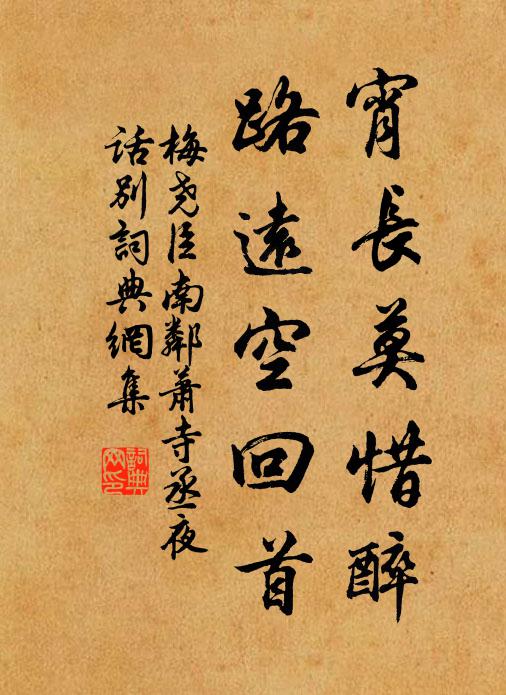 宵長莫惜醉
路遠空回首
梅堯臣南鄰蕭寺丞夜
話別詞典網集
詞典網印